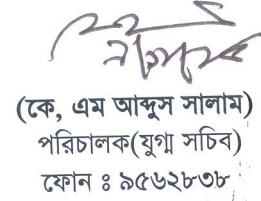 (কে, এম আব্দুস সালাম)
পরিচালক(যুগ্ম সচিব)
ফোন ঃ ৯৫৬২৮৩৮